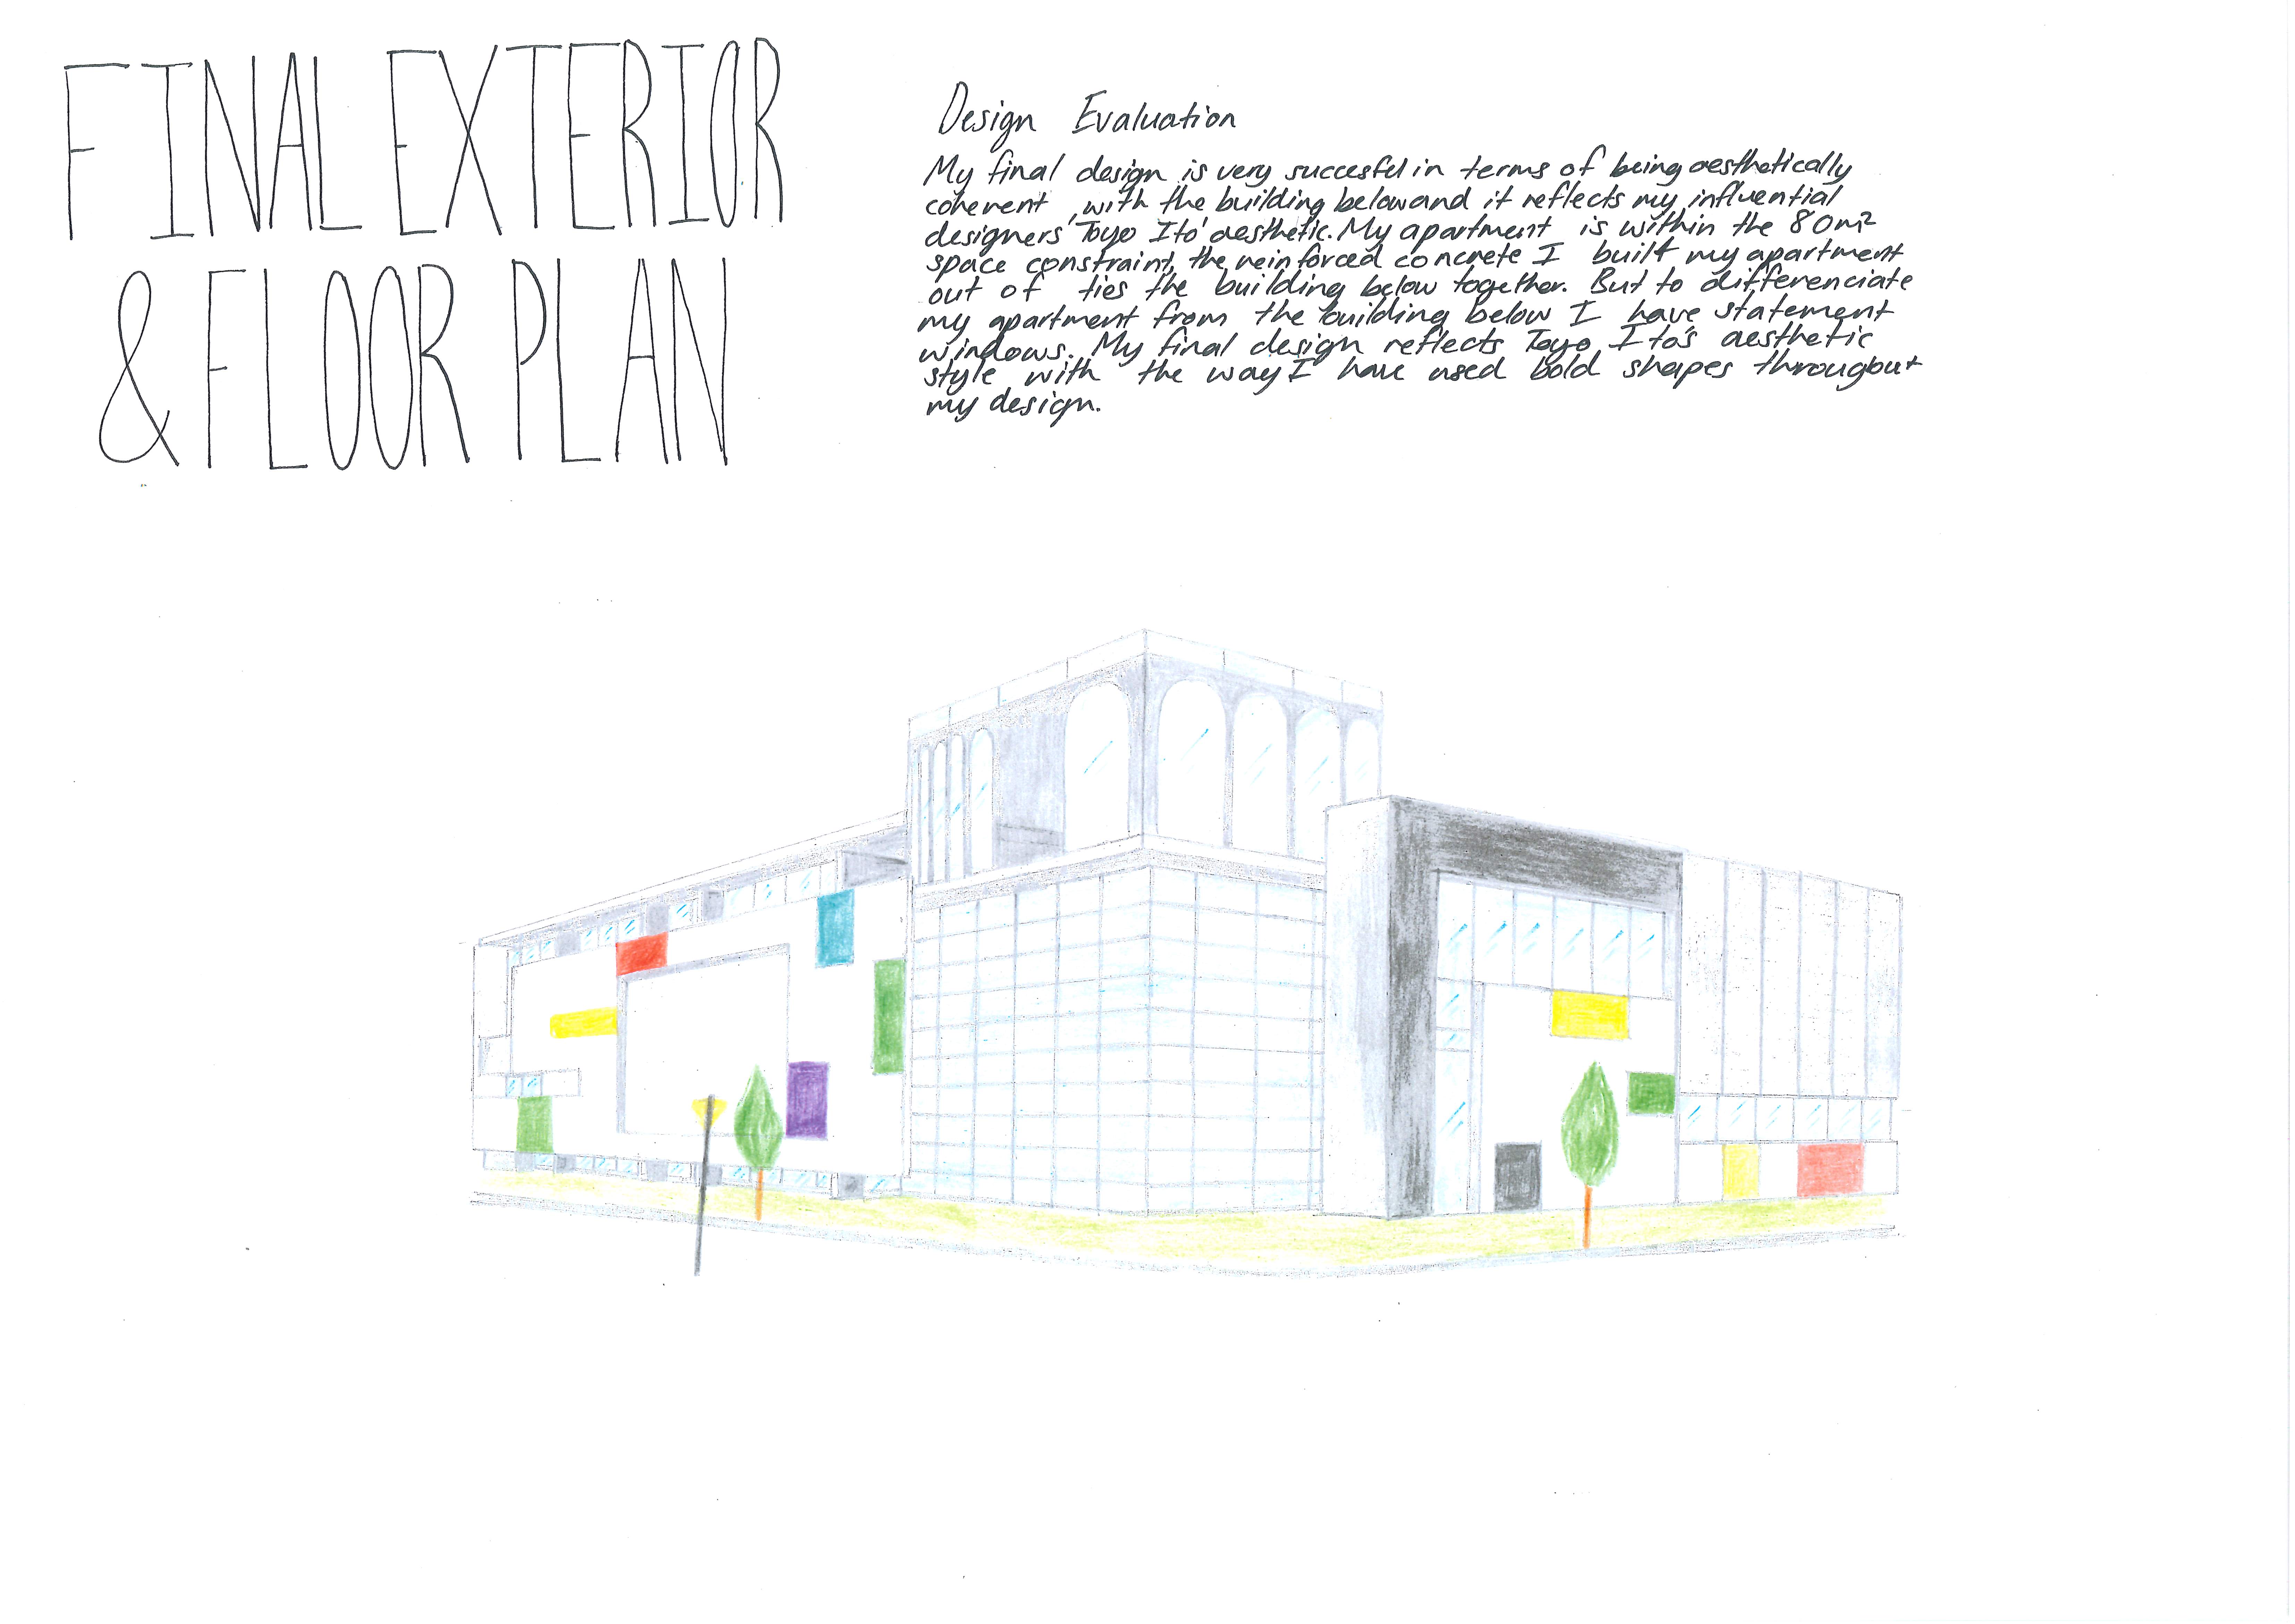 FINAL EXTERIOR
& FLOOR PLAN
Design Evaluation
My final design is very succesful in terms of being aesthetically
coherent, with the building below and it reflects my influential
designers Toyo Ito' aesthetic. My apartment is within the 80m²
space constraint, the reinforced concrete I built my apartment
out of ties the building below together. But to differenciate
my apartment from the building below I have statement
windows. My final design reflects Toyo Ito's aesthetic
style with the way I have used bold shapes througbout
my design.